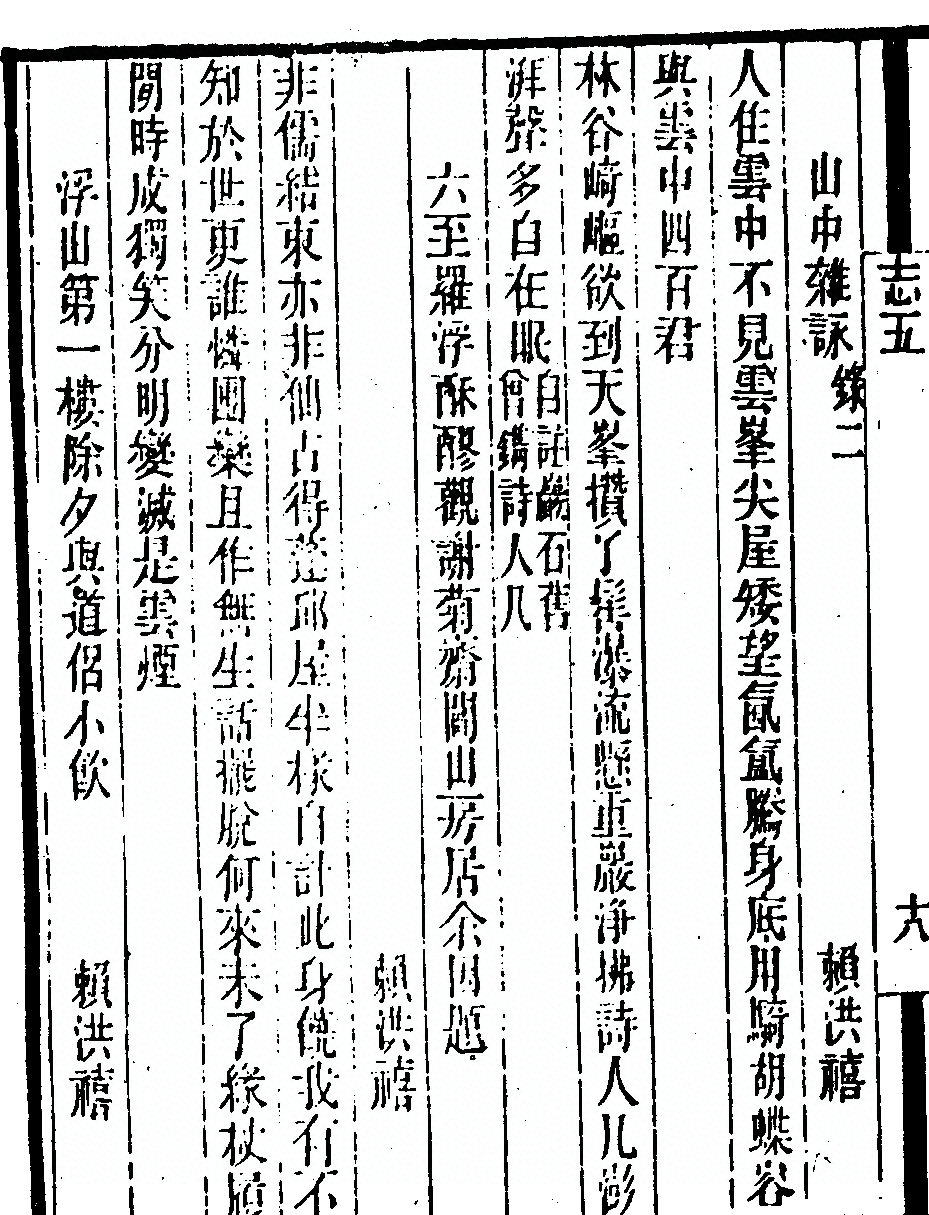 志五
十八
山中雜詠錄二 賴洪禧
人住雲中不見雲峯尖屋矮望氤氳騰身底用騎胡蝶谷
與雲中四百君
林谷崎嶇欲到天峯攢了髻瀑流懸重巖淨拂詩人几澎
湃聲多自在眠自註鐫石舊
曾鐫詩人几
六至羅浮酥醪觀謝菊齋閣山房居余因題
賴洪禧
非儒結束亦非仙占得蓬邱屋半椽自計此身饒我有不
知於世更誰憐團欒且作無生話擺脫何來未了緣杖履
閒時成獨笑分明變滅是雲煙
浮山第一樓除夕與道侶小飲 賴洪禧